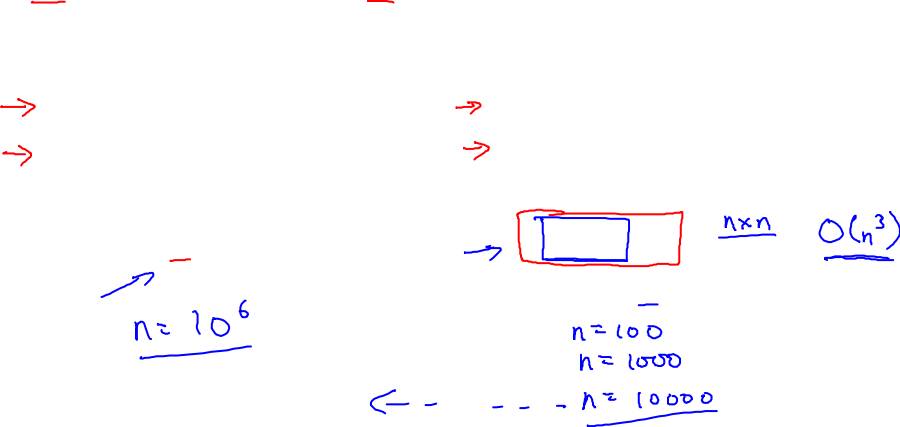 n×n O(n³)
n = 10⁶
n = 100
n = 1000
n = 10000